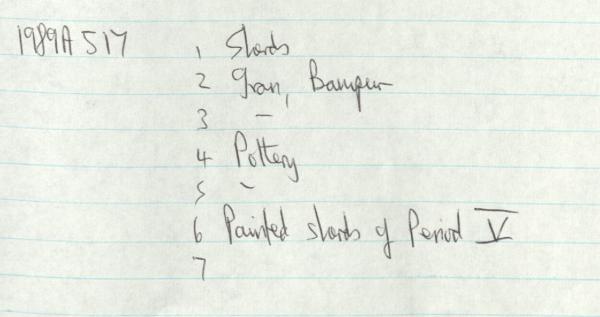 1989A 517 1 Sherds
2 Iran, Bampur
3 –
4 Pottery
5 -
6 Painted sherds of Period V
7